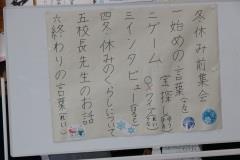 冬休み前集会
一 始めの言葉
二 ゲーム ○×クイズ
宝探し
三 インタビュー
四 冬休みのくらしについて
五 校長先生のお話
六 終わりの言葉